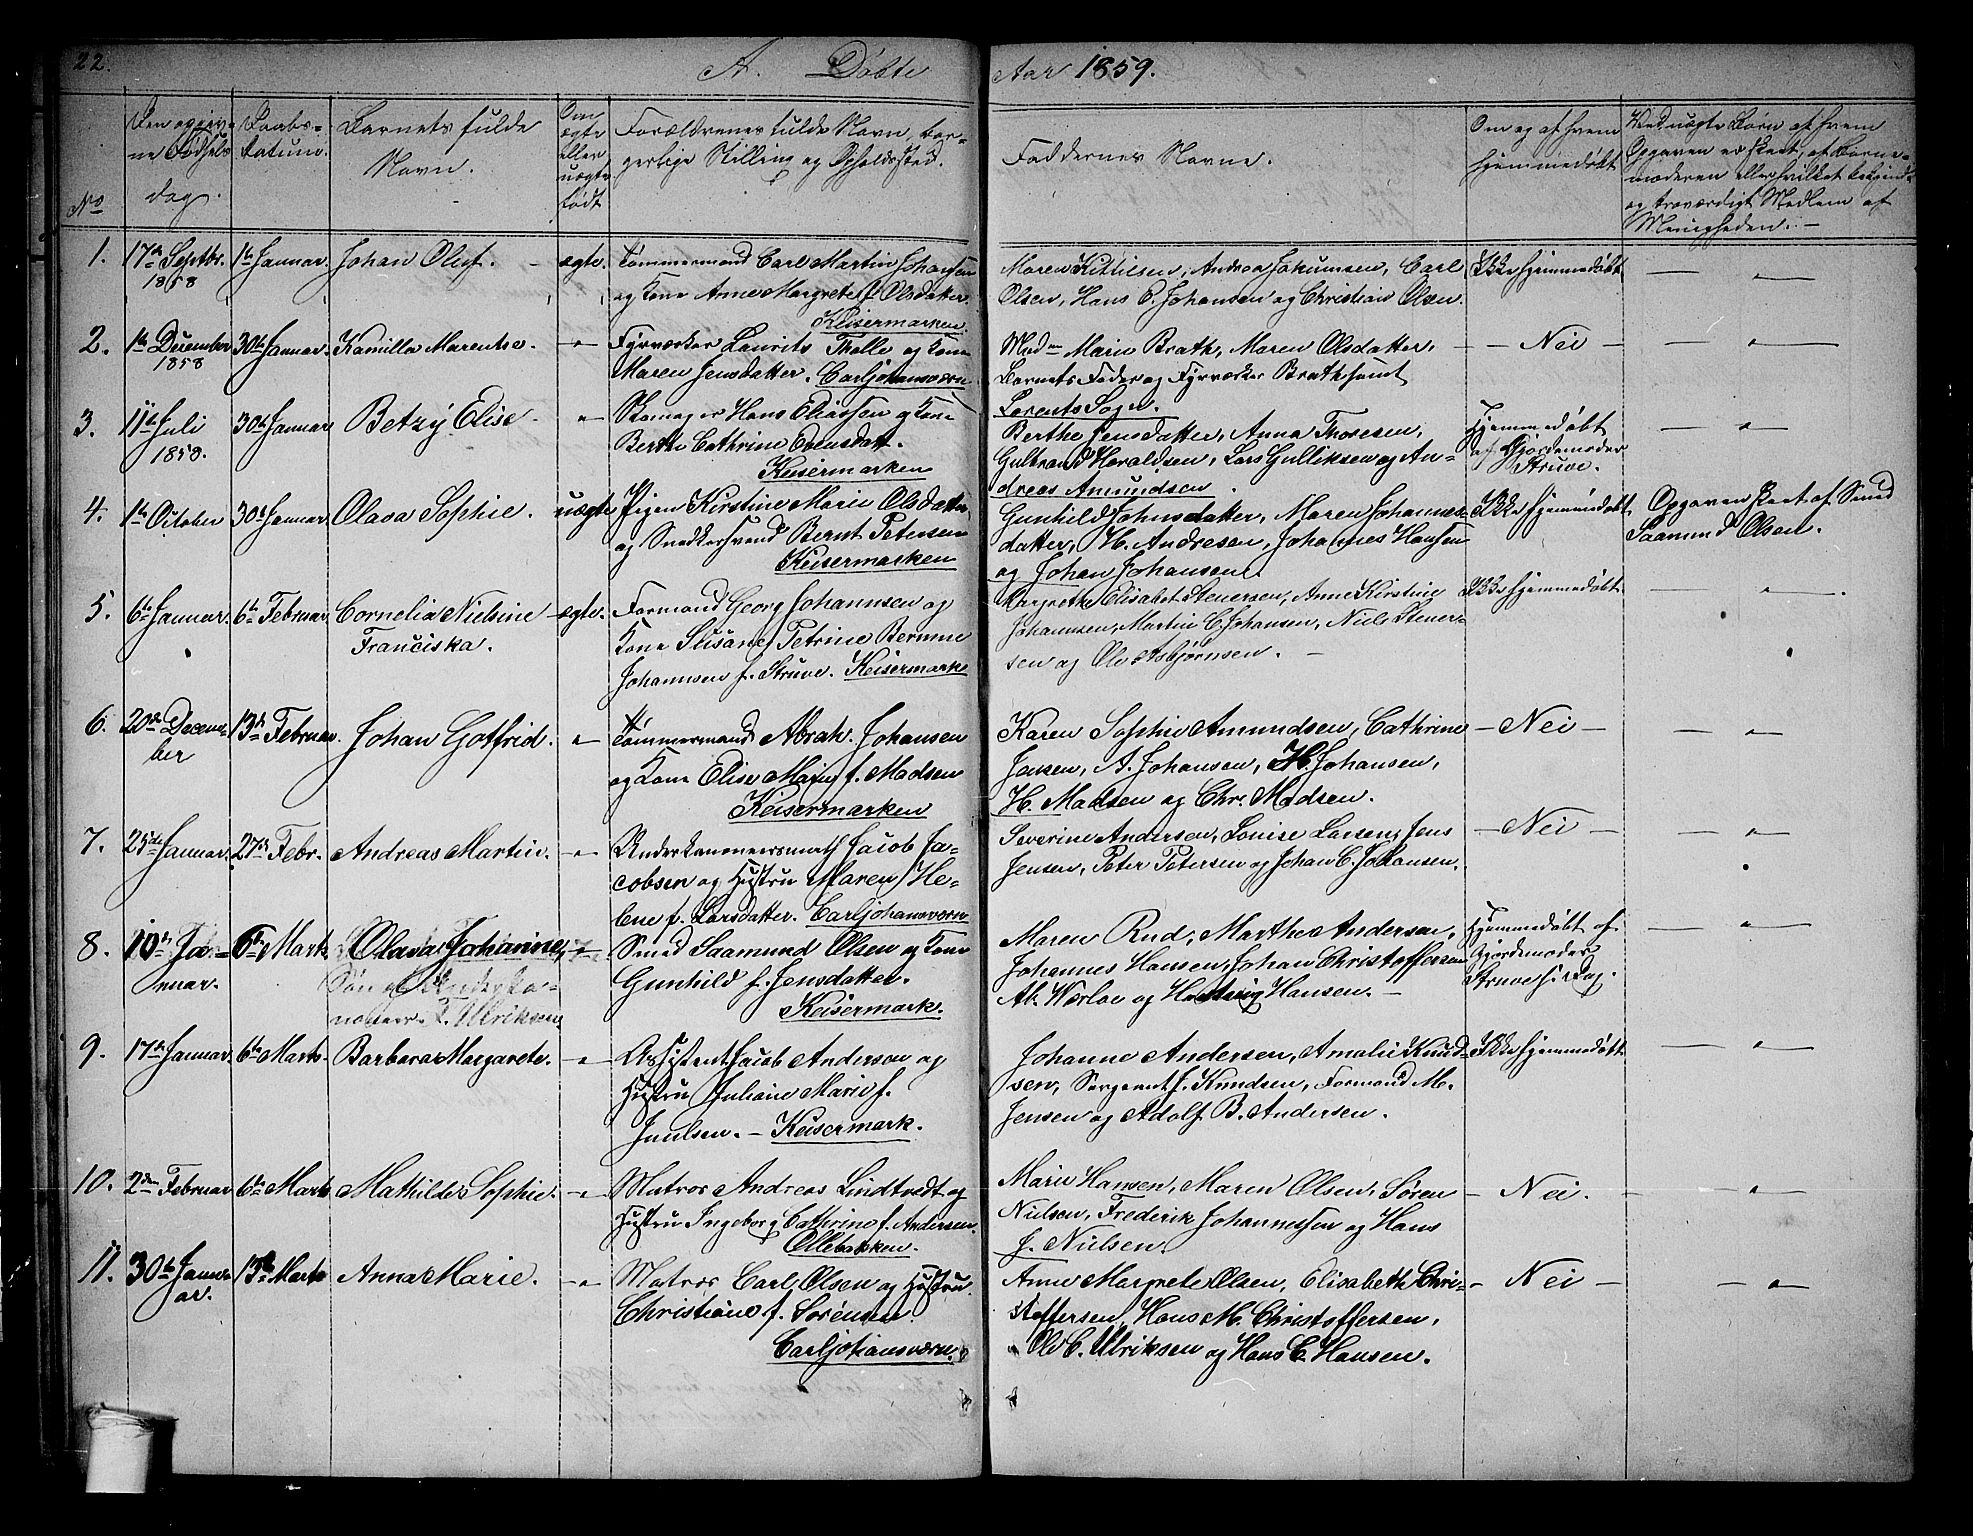 22.
A. Døbte
Aar 1859.
No
Den opgivne Fødselsdag.
Daabsdatum.
Barnets fulde Navn.
Om ægte eller uægte født
Forældrenes fulde Navn, borgerlige Stilling og Opholdssted.
Faddernes Navne.
Om og af hvem hjemmedøbt
Ved uægte Børn af hvem Opgaven er skeet, af Barnemoderen eller hvilket bekjendt og troværdigt Medlem af Menigheden. —
1. 17de Septbr. 1858
1te Januar.
Johan Oluf. —
ægte.
Tømmermand Carl Martin Johansen
og Kone Anne Margrete f. Olsdatter.
Keisermarken.
Maren Kittilsen, Andrea Johumsen, Carl
Olsen, Hans P. Johansen og Christian Olsen.
Ikke hjemmedøbt
2. 1te December 1858
30te Januar.
Kamilla Marentse.
Fyrværker Laurits Thelle og Kone
Maren Jensdatter. Carljohansværn
Madm Marie Brath, Maren Olsdatter,
Barnets Fader og Fyrværker Brath samt
Lorents Sogn.
— Nei —
3. 11te Juli 1858.
30te Januar
Betzy Elise
Skomager Hans Eliassen og Kone
Berthe Cathrine Evensdatt.
Keisermarken
Berthe Jensdatter, Anna Thoresen,
Gulbrand Haraldsen, Lars Gulliksen og An-
dreas Amundsen.
Hjemmedøbt
af Gjordemoder
Struve.
4. 1te October
30te Januar.
Olava Sophie.
uægte
Pigen Kirstine Marie Olsdatter
og Snedkersvend Bernt Petersen
Keisermarken
Gunhild Johnsdatter, Maren Johannes-
datter, H. Andresen, Johannes Hansen
og Johan Johansen.
Ikke hjemmedøbt
Opgaven skeet af Smed
Saamund Olsen.
5. 6te Januar.
6te Februar.
Cornelia Nielsine
Franciska.
ægte.
Formand Georg Johannsen og
Kone Susane Petrine Bermine
Johannsen f. Struve. Keisermark
Margrethe Elisabet Stenersen, Anne Kirstine
Johannsen, Martin C. Johansen, Niels Stener-
sen og Ole Asbjørnsen. —
Ikke hjemmedøbt
6. 20de December
13de Februar.
Johan Gotfrid.
Tømmermand Abrah. Johansen
og Kone Elise Marie f. Madsen
Keisermarken
Karen Sophie Amundsen, Cathrine
Jensen, A. Johansen, H. Johansen,
H. Madsen og Chr. Madsen.
— Nei —
7. 25de Januar.
27de Febr.
Andreas Martin.
Underkanoneersmath Jacob Ja-
cobsen og Hustru Maren He-
lene f. Larsdatter. Carljohansværn
Severine Andersen, Louise Larsen, Jens
Jensen, Peter Petersen og Johan C. Johansen.
— Nei —
8. 10de Ja-
nuar.
6te Marts
Olava Johanne,
Smed Saamund Olsen og Kone
Gunhild f. Jensdatter.
Keisermark.
Maren Rud, Marthe Andersen,
Johannes Hansen, Johan Christoffersen
Ab. Wærloe og Hansen. —
Hjemmedøbt af
Gjordemoder
Struve s. Dag.
9. 17de Januar.
6te Marts.
Barbara Margarete.
Assistent Jacob Andersen og
Hustru Juliane Marie f.
Juulsen. — Keisermark.
Johanne Andersen, Amalie Knud-
sen, Sergeant J. Knudsen, Formand M.
Jensen og Adolf B. Andersen.
Ikke hjemmedøbt
10. 2den Februar
6te Marts
Mathilde Sophie.
Matros Andreas Lindtvedt og
Hustru Ingeborg Cathrine f. Andersen.
Ollebakken.
Marie Hansen, Maren Olsen, Søren
Nielsen, Frederik Johannessen og Hans
J. Nielsen.
— Nei.
11. 30te Janu-
ar.
13de Marts
Anna Marie.
Matros Carl Olsen og Hustru
Christiane f. Sørensen.
Carljohansværn.
Anne Margrete Olsen, Elisabeth Chri-
stoffersen, Hans M. Christoffersen,
Ole C. Ulriksen og Hans C. Hansen.
— Nei —